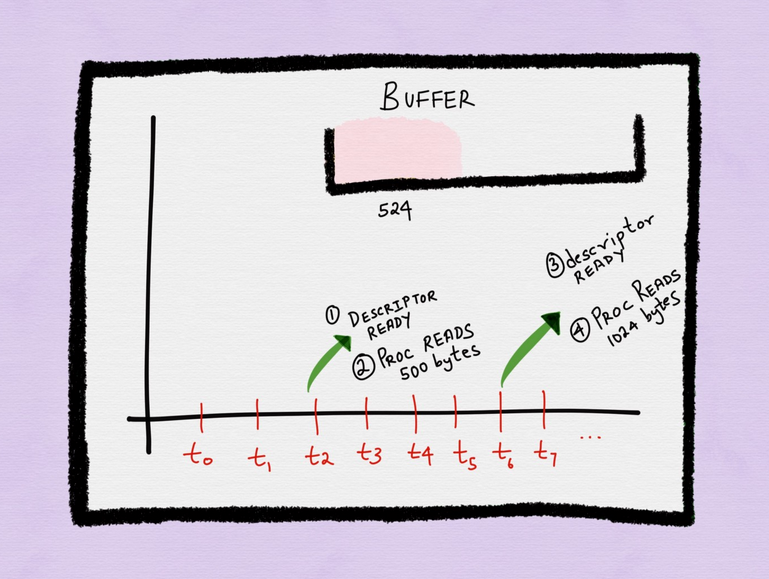 BUFFER
524
③ descriptor
READY
④ PROC READS
1024 bytes
① DESCRIPTOR
READY
② PROC READS
500 bytes
t₀ t₁ t₂ t₃ t₄ t₅ t₆ t₇ ...